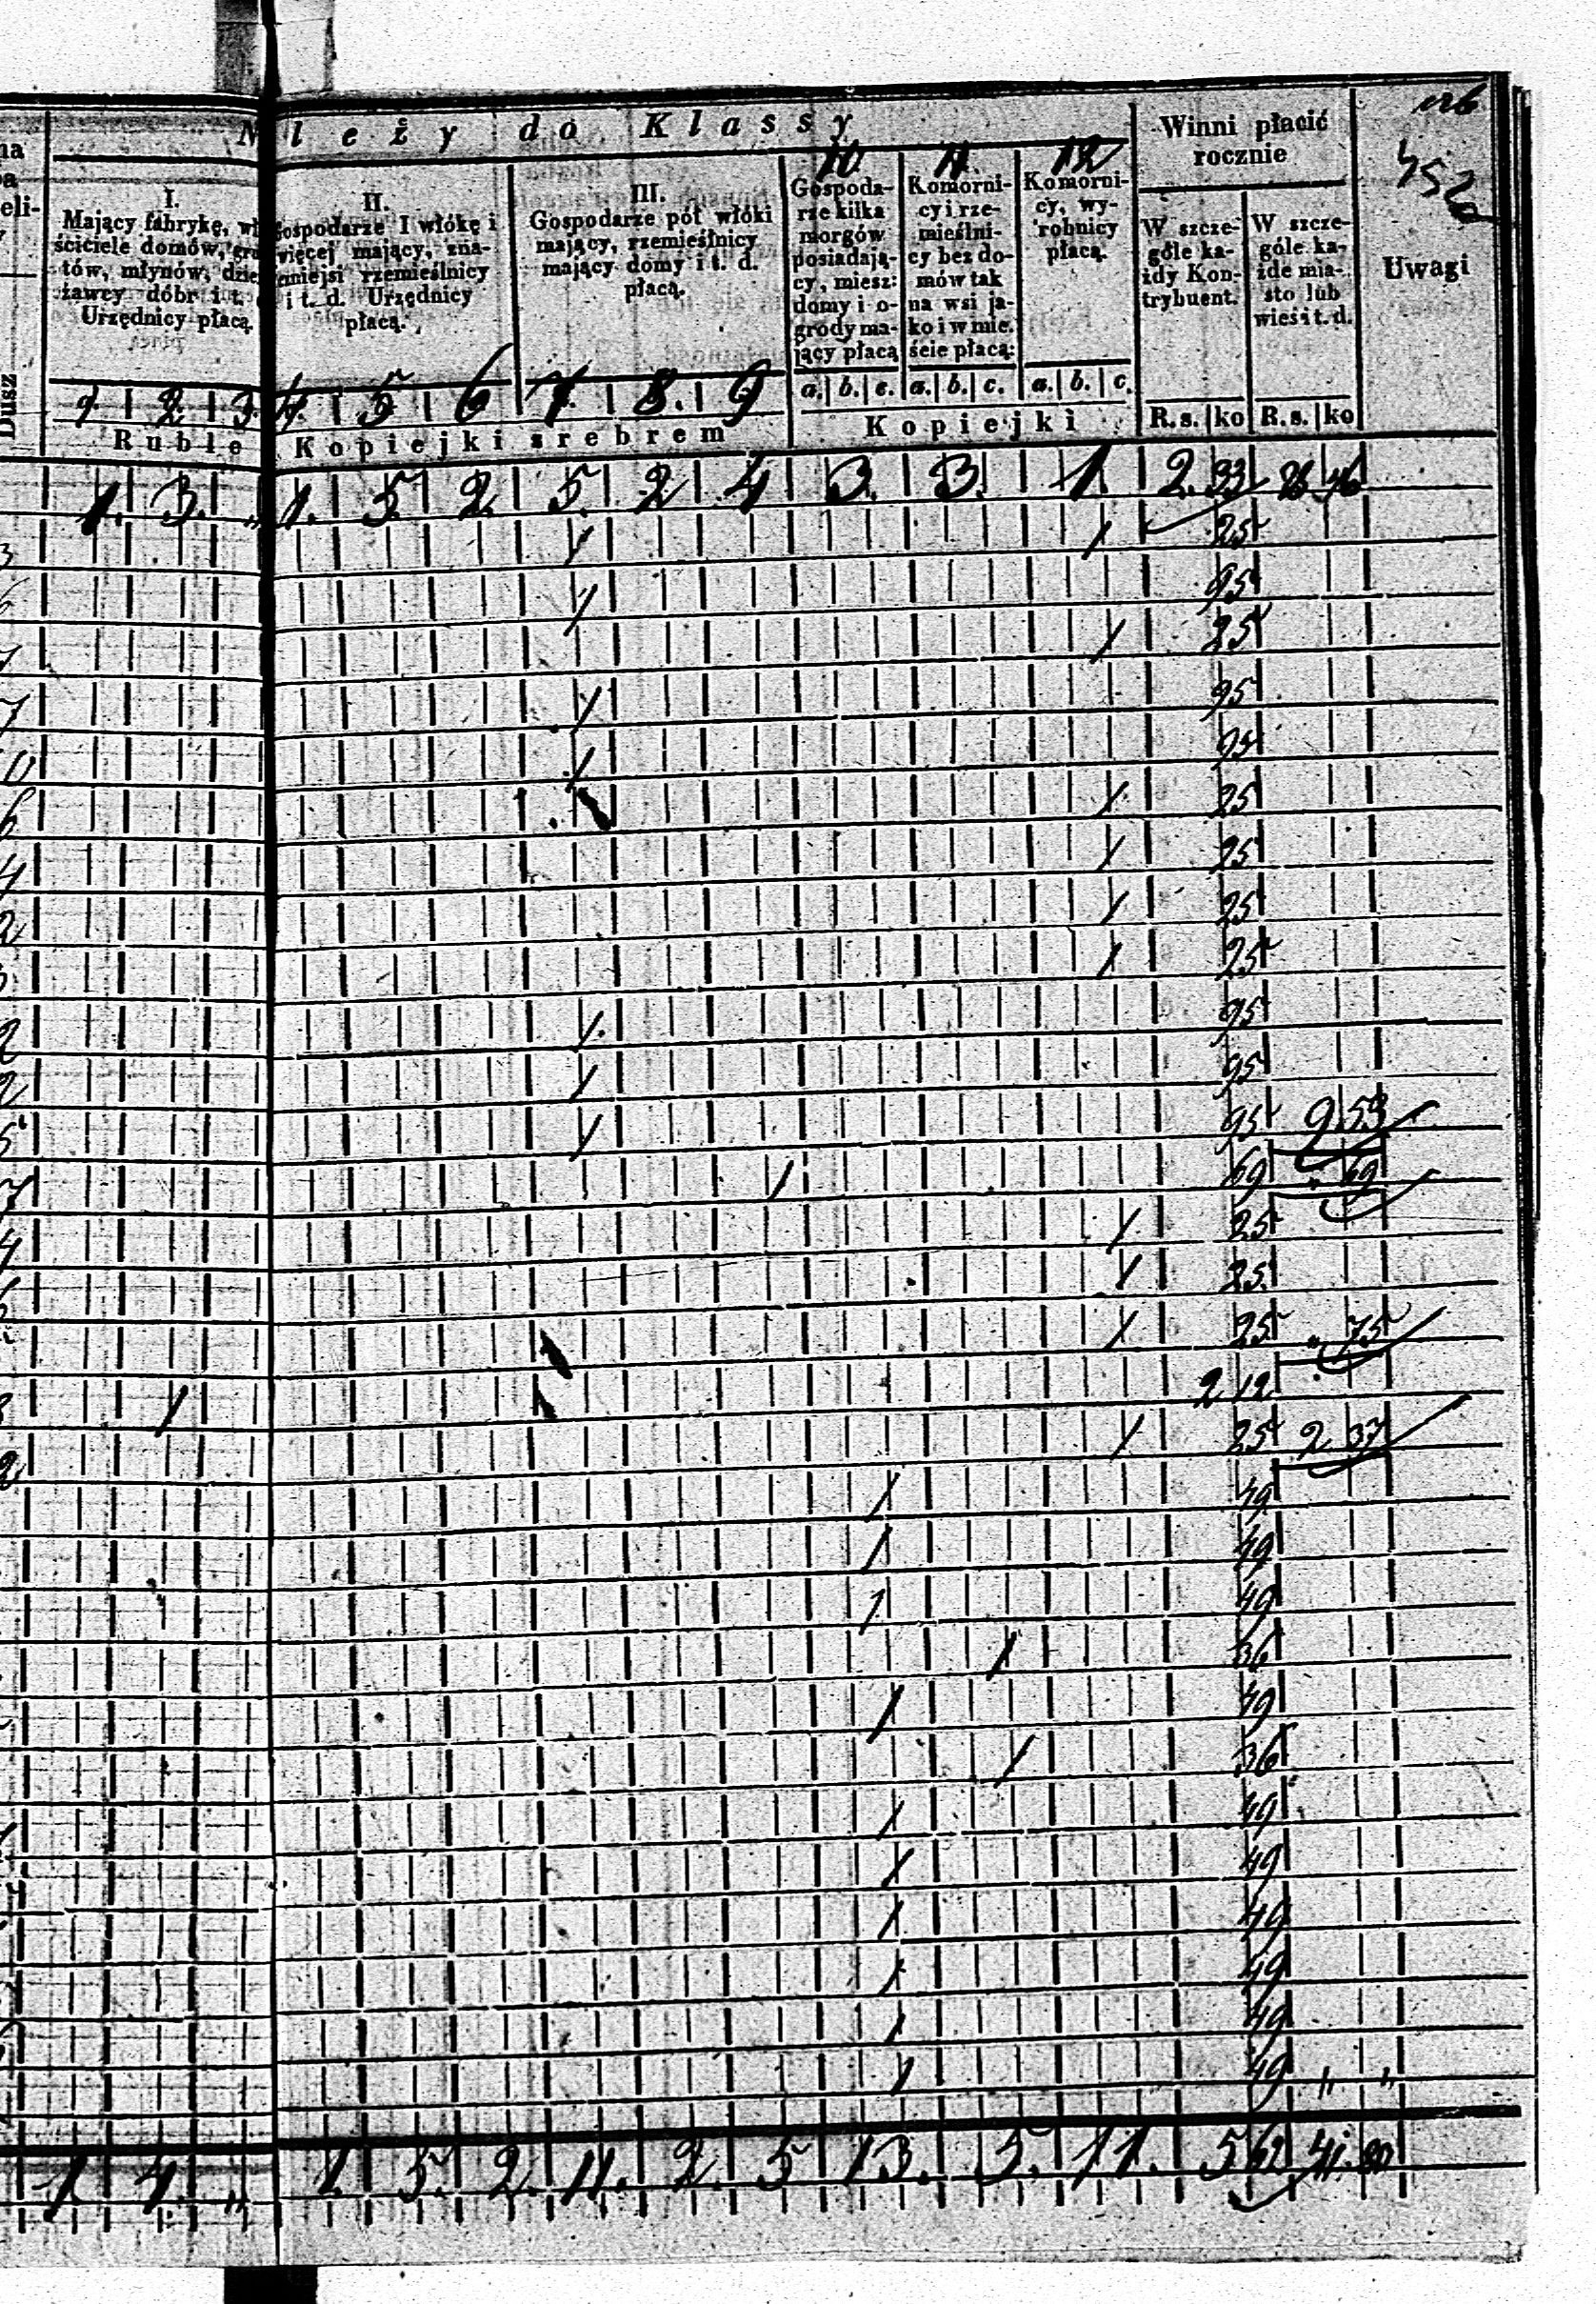 Należy do Klassy
I.
Mający fabrykę, wł
ściciele domów, gru
tów, młynów, dzie
żawcy dóbr i t.
Urzędnicy płacą.
II.
Gospodarze I włókę i
więcej mający, zna-
mniejsi rzemieślnicy
i t. d. Urzędnicy
płacą.
III.
Gospodarze pół włóki
mający, rzemieślnicy
mający domy i t. d.
płacą.
10
Gospoda-
rze kilka
morgów
posiadają-
cy, miesz:
domy i o-
grody ma-
jący płacą
11.
Komorni-
cy i rze-
mieślni-
cy bez do-
mów tak
na wsi ja-
ko i w mie.
ście płacą:
12
Komorni-
cy, wy-
robnicy
płacą.
Winni płacić
rocznie
W szcze-
góle ka-
żdy Kon-
trybuent.
W szcze-
góle ka-
żde mia-
sto lub
wieś i t. d.
Uwagi
Dusz
1 2. 3. 4. 5 6 7. 8. 9
a. b. c. a. b. c. a. b. c.
Ruble Kopiejki srebrem Kopiejki R. s. ko R. s. ko
1. 3. „ 1. 5. 2. 5. 2 4 3. 3. 1. 2. 33 26 46
1 1 25
1 95
1 25
1 95
1 95
1 25
1 25
1 25
1 25
1 95
1 95
1 95 9 53
1 69 „ 69
1 25
1 25
1 25 „ 75
1 2 12
1 25 2 37
1 49
1 49
1 49
1 36
1 49
1 36
1 49
1 49
1 49
1 49
1 49
1 49 „ „
1. 4. „ 1. 5. 2. 11. 2. 5 13. 5. 11. 5 62 41. 80